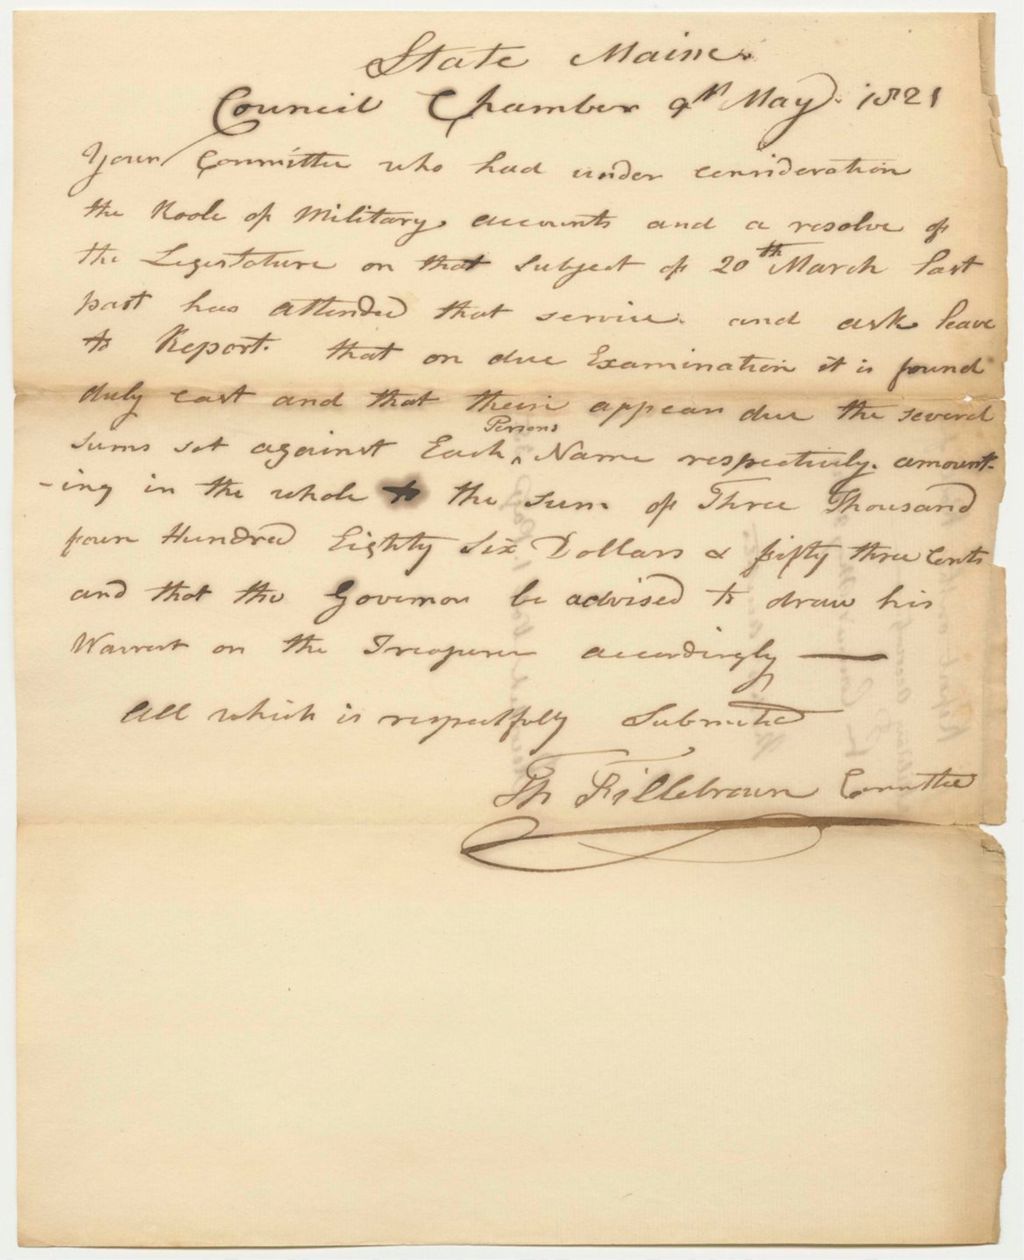 State Maine
Council Chamber 9th May. 1821
Your Committee who had under consideration
the Roole of Military accounts and a resolve of
the Legestature on that Subject of 20th March last
past has attended that service. and ask leave
to Report. that on due Examination it is found
duly cast and that their appear due the several
sums set against Each ^ Persons Name respectively. amount-
-ing in the whole to the sum of Three Thousand
four Hundred Eighty Six Dollars & fifty three Cents
and that the Governor be advised to draw his
Warrent on the Treasurer accordingly —
All which is respectfully Submitted
Th Fillebrown Committee